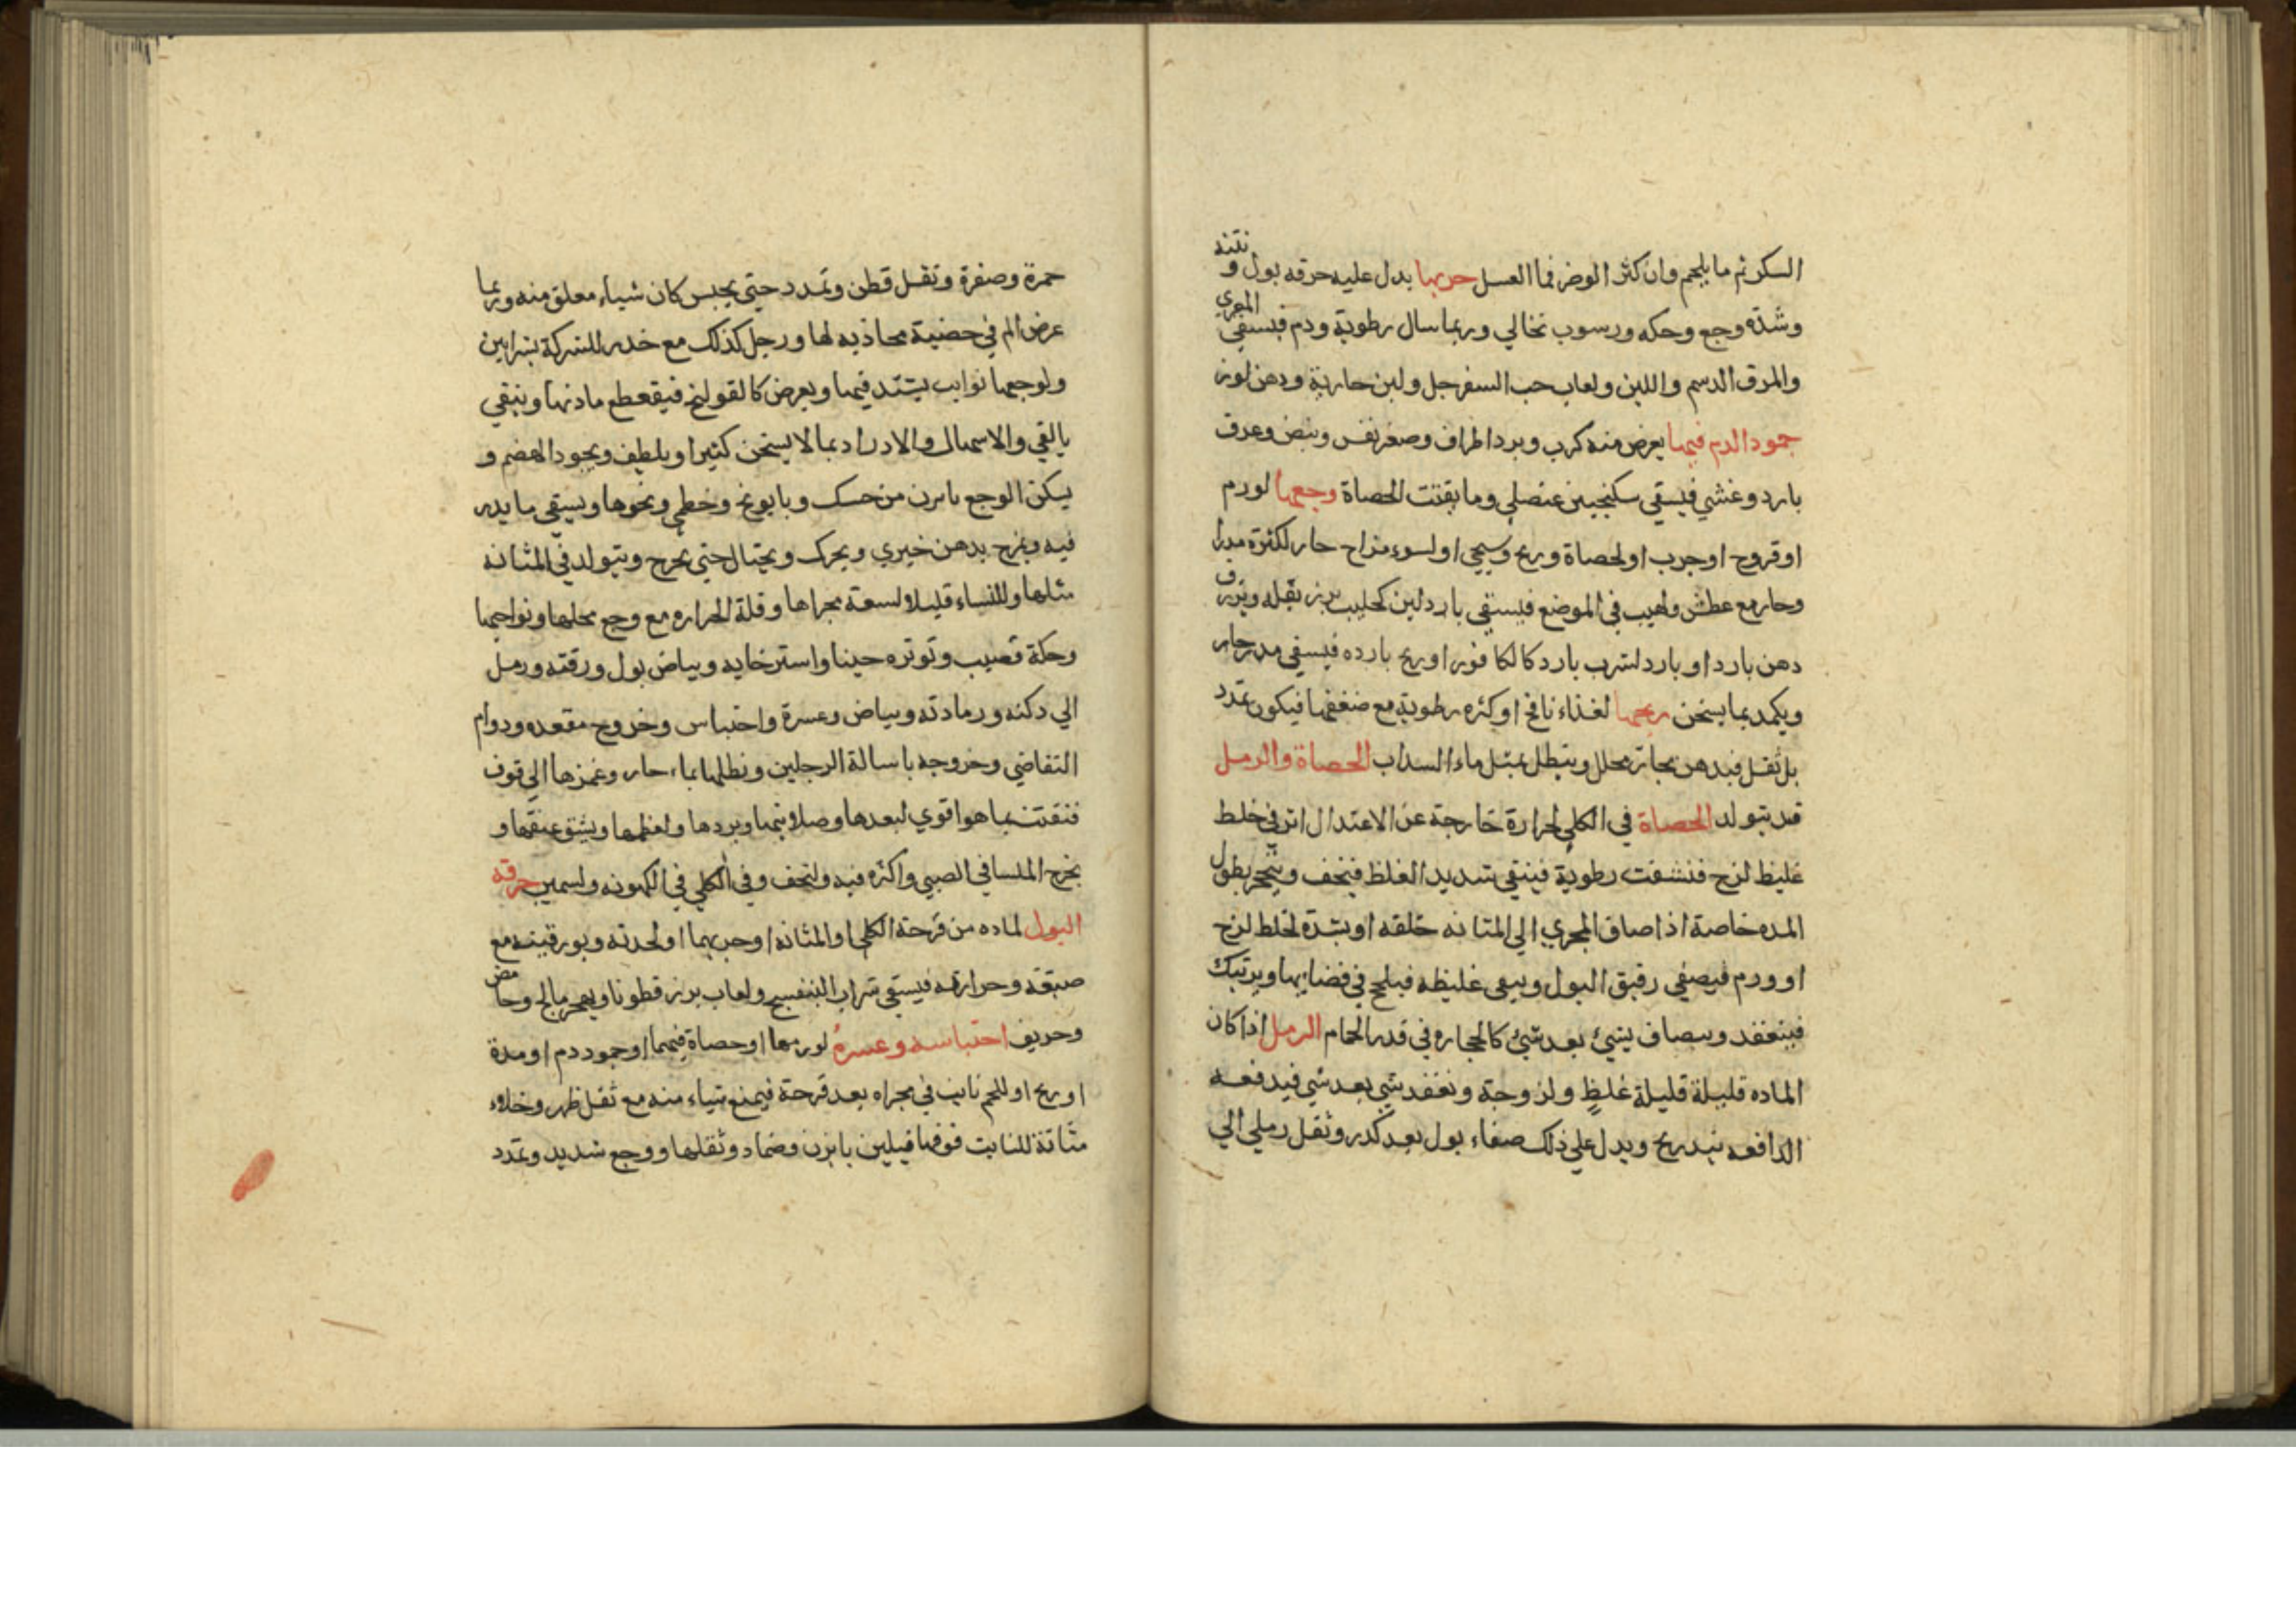 السكر ثم ما يلحم وان كثر الوضر فما العسل جربها يدل عليه حرقه بول و نتنه
وشدة وجع وحكه ورسوب نخالي وربما سال رطوبة ودم فيسقي المغري
والمرق الدسم واللبن ولعاب حب السفرجل ولبن حارية ودهن لوز
جمود الدم فيها يعرض منه كرب وبرد اطراف وصغر نفس ونبض وعرق
بارد وغشي فيسقي سكنجبين عنصلي وما يفتت الحصاة وجعها لورم
او قروح او جرب او لحصاة وريح وسيجي او لسوء مزاج حار لكثرة مدرا
وحار مع عطش ولهيب في الموضع فيسقي بارد لين كحليب بزر بقله ويزرق
دهن بارد او بارد لشرب بارد كالكافور او ريح بارده فيسقي مدر حار
ويكمد بما يسخن ريحها لغذاء نافخ او كثره رطوبة مع ضعفها فيكون تمدد
بل ثقل فيدهن بحار محلل وينطل بمثل ماء السداب الحصاة والرمل
قد يتولد الحصاة في الكلي لحرارة خارجة عن الاعتدال اثر في خلط
غليظ لزج فنشفت رطوبة فينقي شديد الغلظ فيجف ويتحجر بطول
المده خاصة اذا ضاق المجري الي المثانه خلقه او بشدة لخلط لزج
او ورم فيصفي رقيق البول ويبقي غليظه فيلحج في فضايها ويرتبك
فينعقد ويضاف شيئ بعد شيئ كالحجاره في قدر الحمام الرمل اذا كان
الماده قليلة قليلة غلظ ولزوجة ونعقد شي بعد شي فيدفعه
الدافعه بتدريج ويدل علي ذلك صفاء بول بعد كدر وثقل رملي الي
حمرة وصفرة وثقل قطن وتمدد حتي يحبس كان شياء معلق منه وربما
عرض الم في خصية محاذيه لها ورجل كذلك مع خدر للشركة بشرايين
ولوجعها نوايب يشتد فيها ويعرض كالقولنج فيقطع مادتها وينقي
بالقي والاسهال والادرار بما لا يسخن كثيرا ويلطف ويجود الهضم و
يسكن الوجع بابزن من حسك وبابونج وخطمي ونحوها ويسقي ما يدر
فيه ويمزج بدهن خيري ويحرك ويحتال حتي يخرج ويتولد في المثانه
مثلها وللنساء قليلا لسعة مجراها وقلة الحراره مع وجع محلها ونواحيها
وحكة قضيب وتوتره حينا واسترخايه وبياض بول ورقته ورمل
الي دكنه ورمادته وبياض وعسرة واحتباس وخروج مقعده ودوام
التقاضي وخروجه باسالة الرجلين ونطلها بماء حار وغمزها الي فوق
فنفتت بما هو اقوي لبعدها وصلابتها وبردها ولعظمها ويشق عنقها و
يخرج الملسا في الصبي واكثره فيه ولنحف وفي الكلي في الكهونه ولسمين حرقه
البول لماده من قرحة الكلي او المثانه او جربهما او لحدته وبورقيته مع
صبغه وحرارته فيسقي شراب البنفسج ولعاب بزر قطونا ويهجر مالح وحامض
وحريف احتباسه وعسره لورمها او حصاة فيهما او جمود دم او مدة
او ريح او للحم نابت في مجراه بعد قرحة فيمنع شياء منه مع ثقل ظهر وخلاء
مثانة للنابت فوقها فيلين بابزن وضماد وثقلها ووجع شديد وتمدد